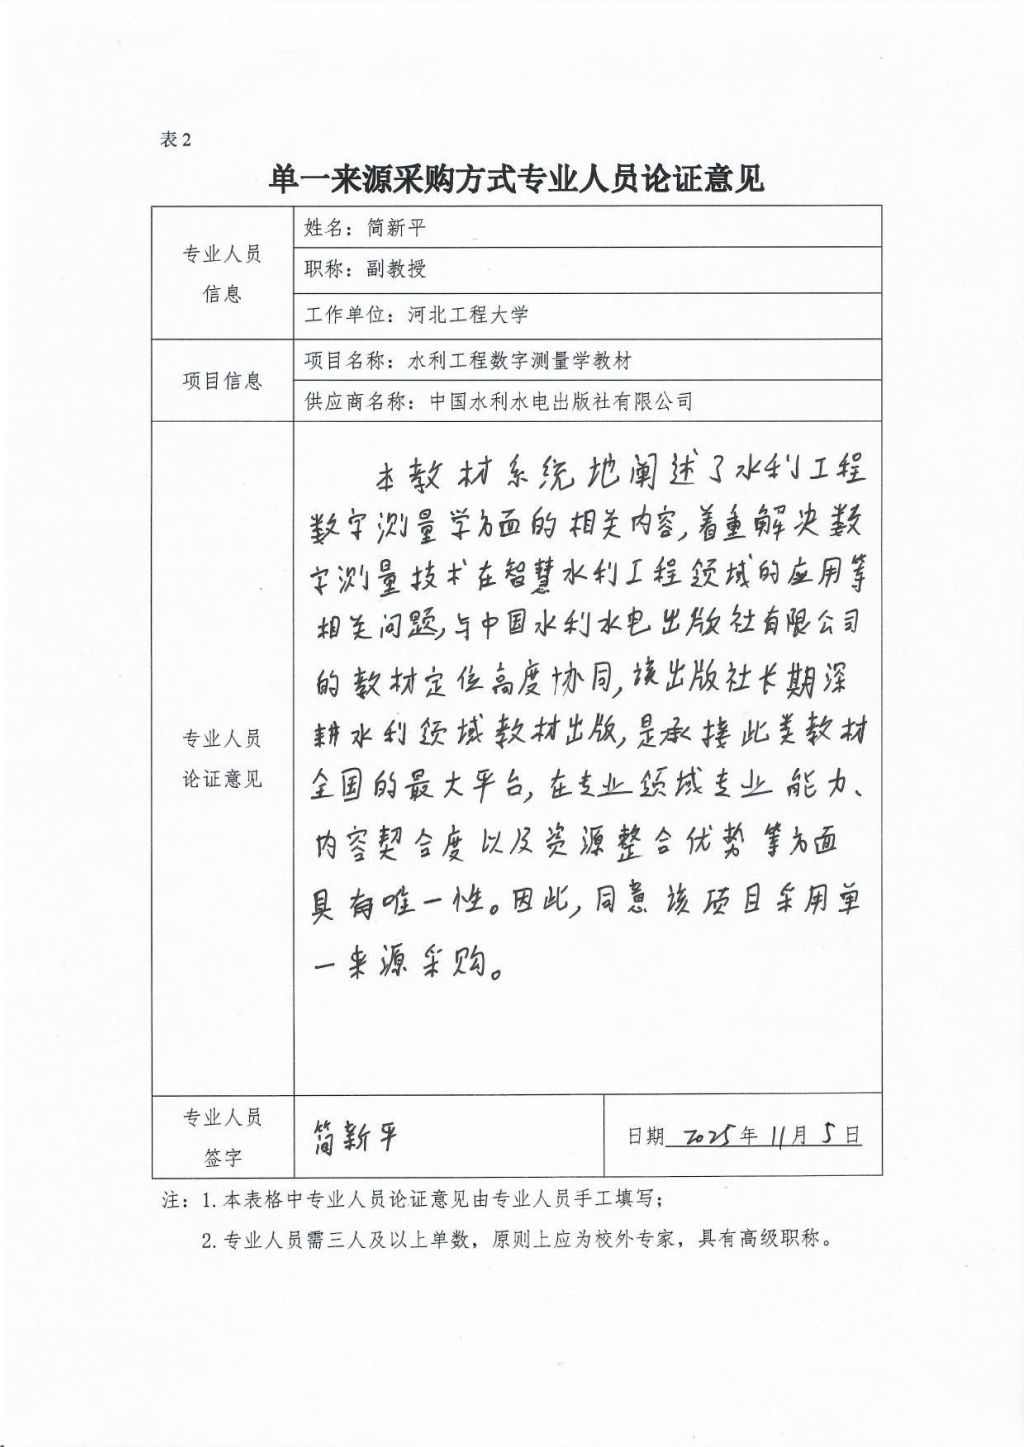 表2
单一来源采购方式专业人员论证意见
专业人员
信息
姓名：简新平
职称：副教授
工作单位：河北工程大学
项目信息
项目名称：水利工程数字测量学教材
供应商名称：中国水利水电出版社有限公司
专业人员
论证意见
本教材系统地阐述了水利工程
数字测量学方面的相关内容，着重解决数
字测量技术在智慧水利工程领域的应用等
相关问题，与中国水利水电出版社有限公司
的教材定位高度协同，该出版社长期深
耕水利领域教材出版，是承接此类教材
全国的最大平台，在专业领域专业能力、
内容契合度以及资源整合优势等方面
具有唯一性。因此，同意该项目采用单
一来源采购。
专业人员
签字
简新平
日期 2025年11月5日
注：1.本表格中专业人员论证意见由专业人员手工填写；
2.专业人员需三人及以上单数，原则上应为校外专家，具有高级职称。